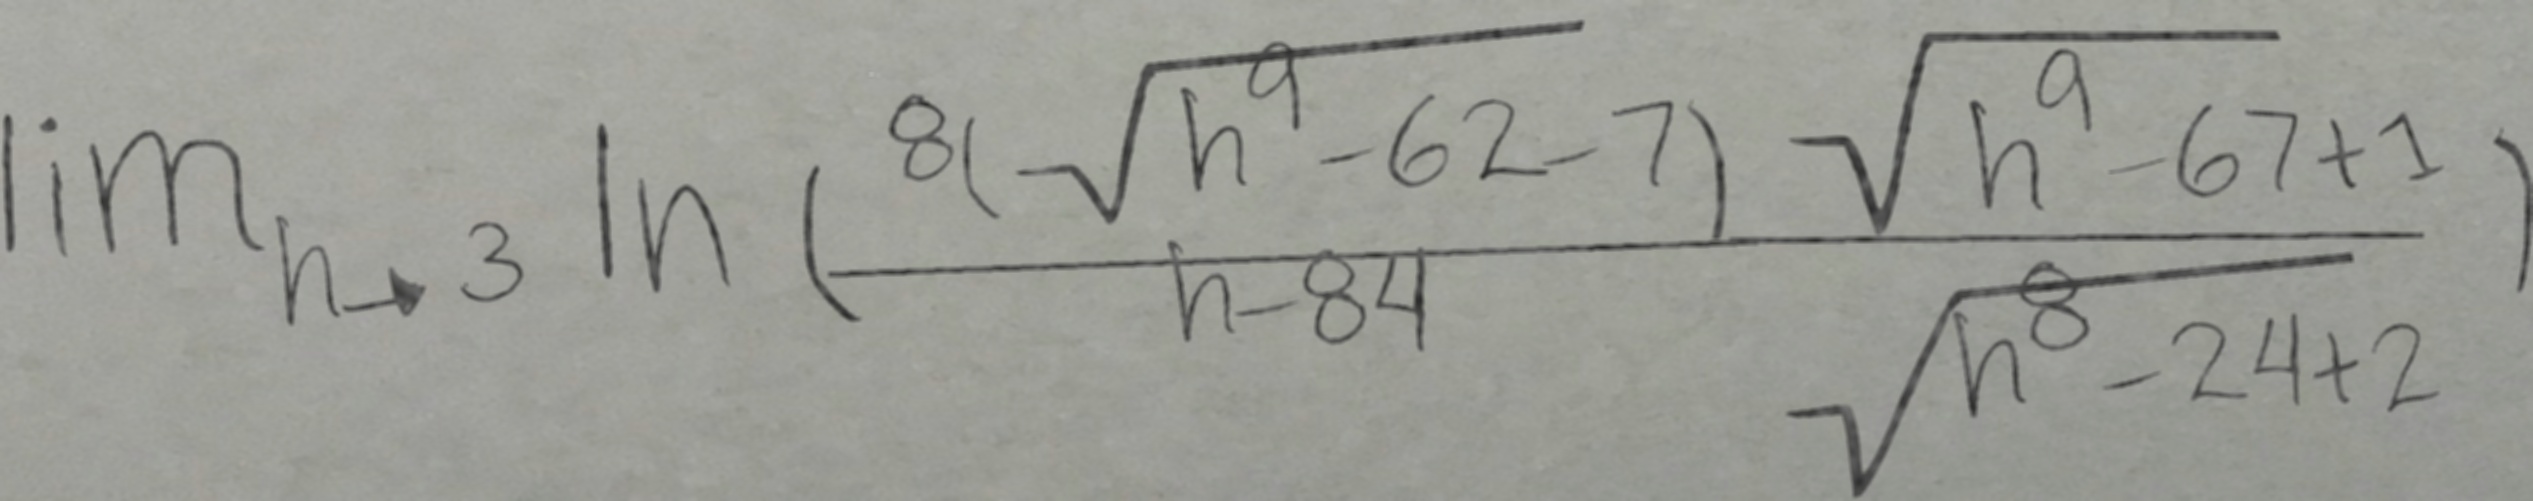 \lim_{h \to 3} \ln \left( \frac{8(-\sqrt{h^9-62}-7)}{h-84} \frac{\sqrt{h^9-67}+1}{\sqrt{h^8-24}+2} \right)